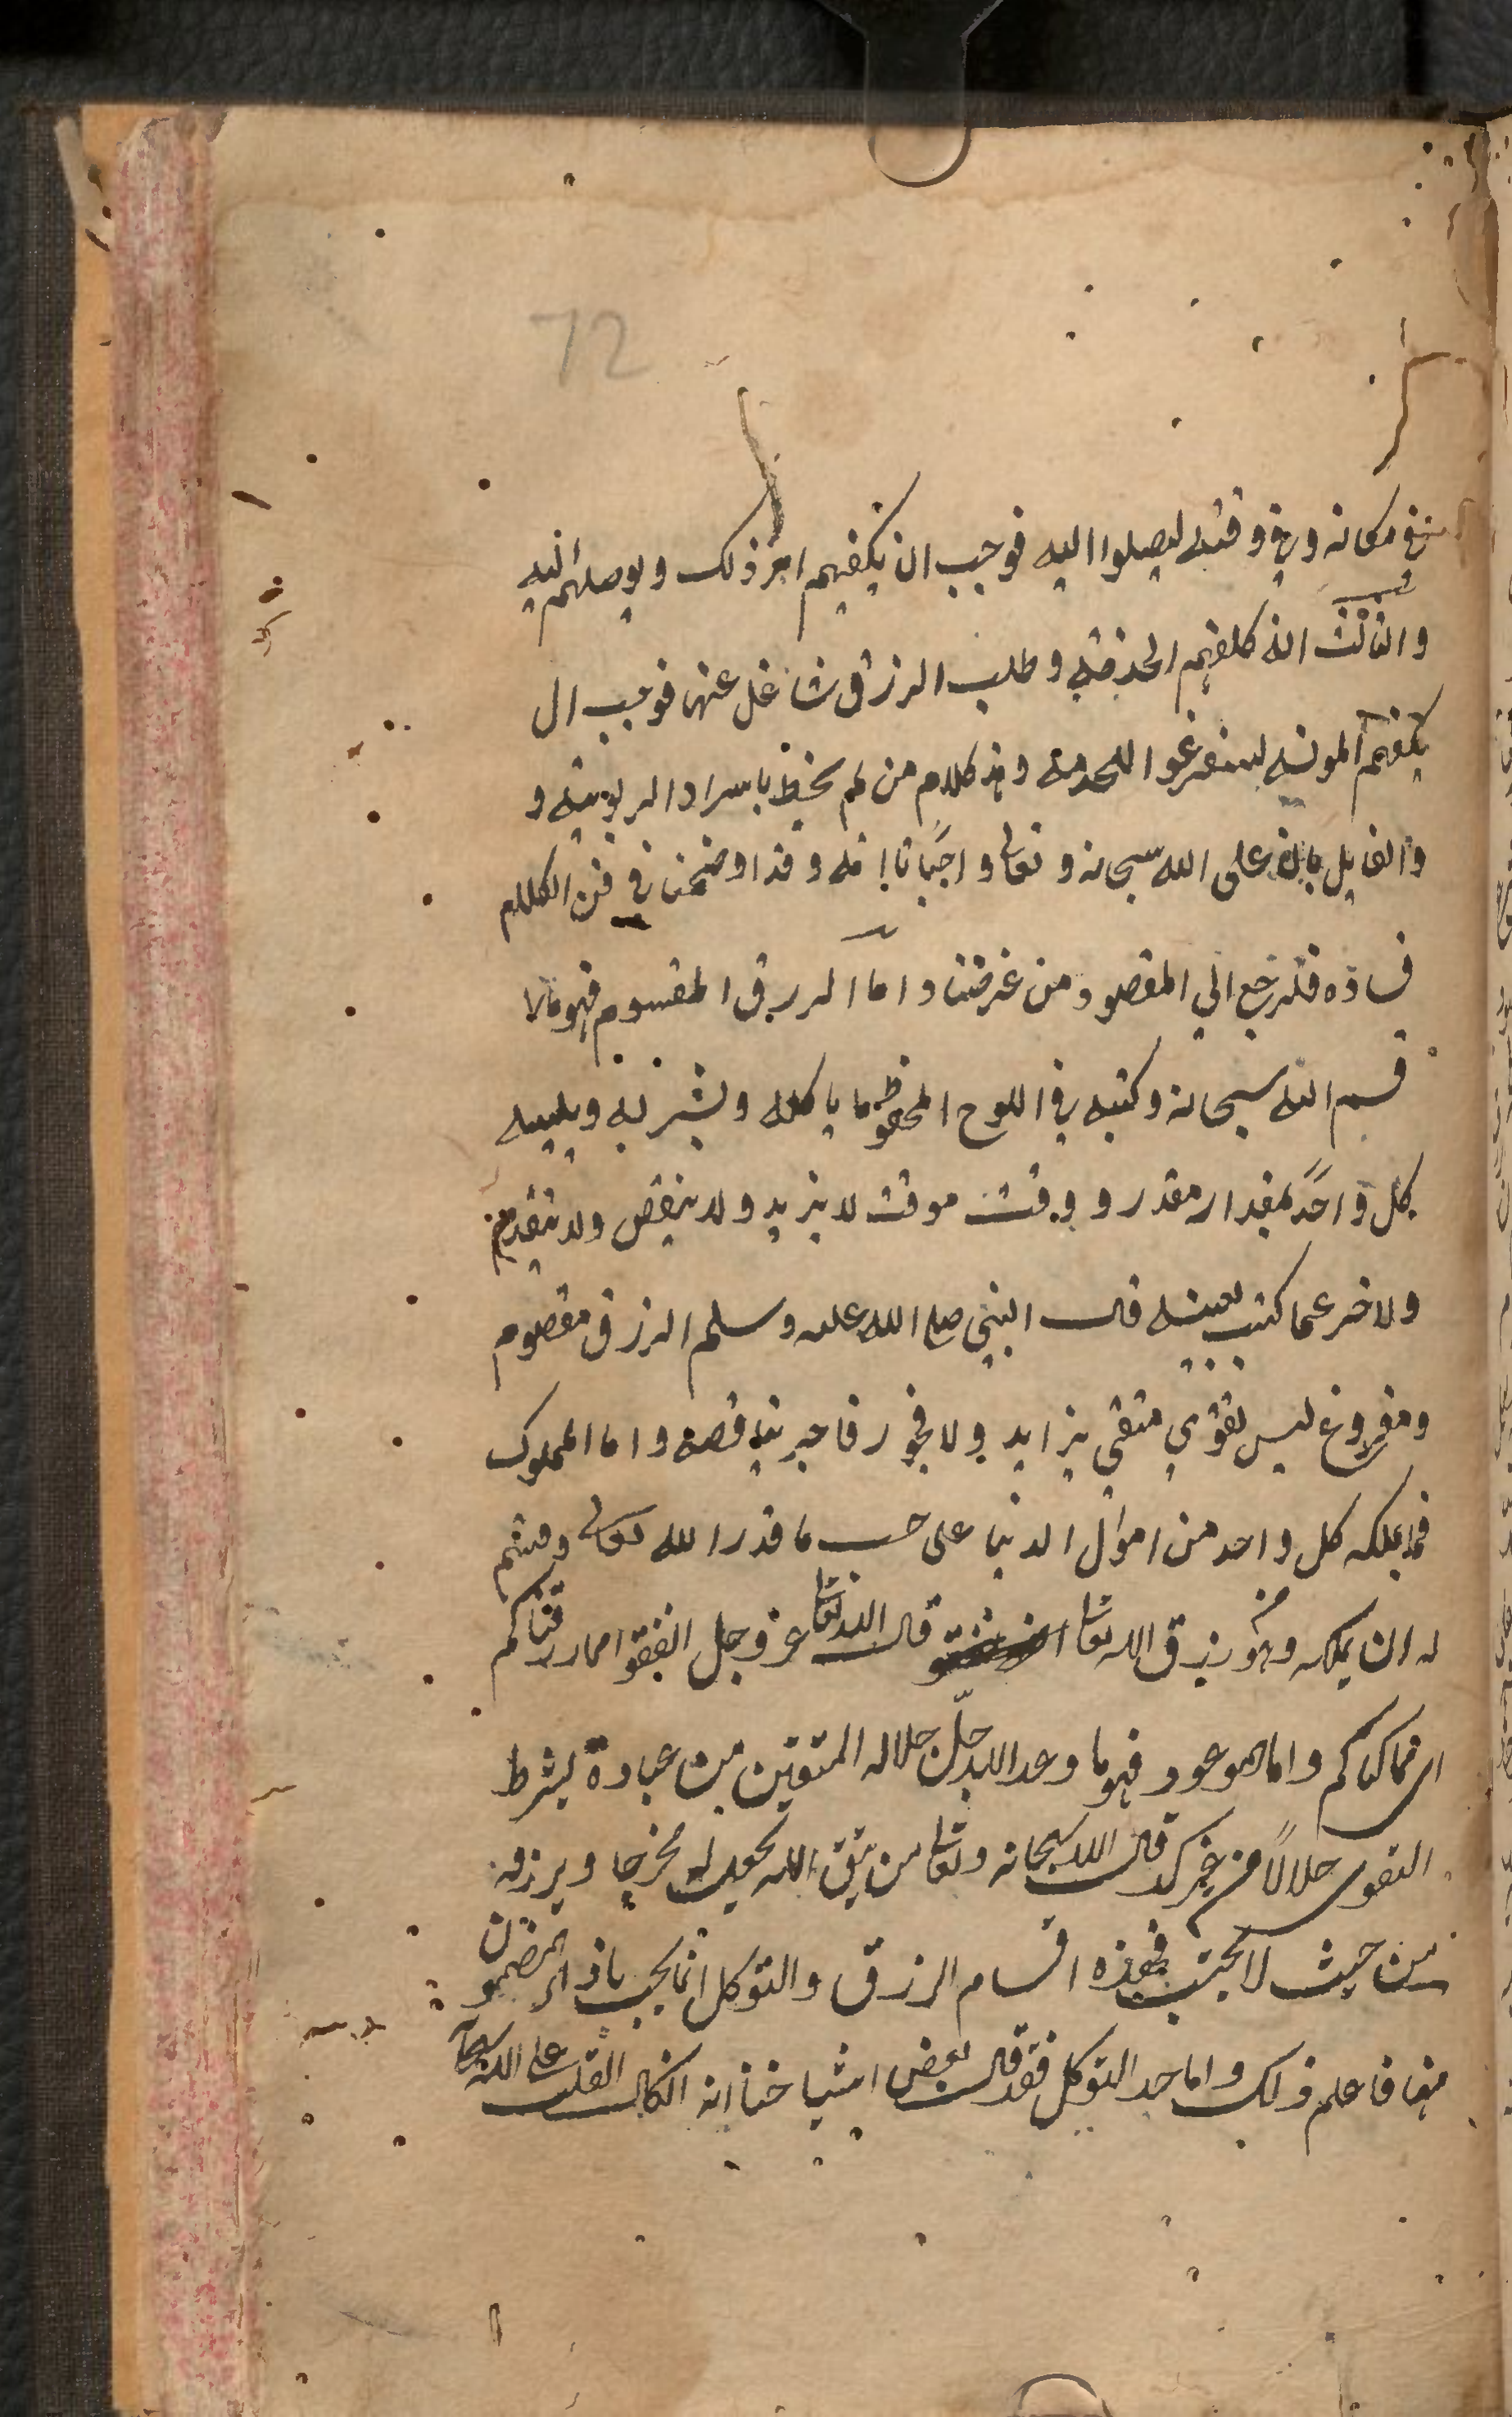 72
في مكانه وفي وقته ليصلوا اليه فوجب ان يكفيهم امر ذلك ويوصلهم اليه
والثالث انه كلفهم الخدمة وطلب الرزق شاغل عنها فوجب ان
يكفيهم المونة ليتفرغوا للخدمة وهذ كلام من لم يحظ باسرار الربوبية و
والقايل بان على الله سبحانه وتعالى واجبا تايه وقد اوضحنا في فن الكلام
فساده فلنرجع الي المقصود من غرضنا واما الررق المقسوم فهو مالا
قسم الله سبحانه وكتبه في اللوح المحفوظ ما ياكله ويشربه ويلبسه
كل واحد بمقدار مقدر و وقت موقت لا يزيد ولا ينقص ولا يتقدم
ولاخر عما كتب بعينه قال النبي صلى الله عليه وسلم الرزق مقصوم
ومفروغ ليس تقوي متقي يزايد ولا فجور فاجر بناقصه واما المملوك
فما يملكه كل واحد من اموال الدنيا على حسب ما قدر الله تعالى وقسم
له ان يملكه وهو من رزق الله تعالى قال الله تعالى عز وجل انفقوا مما رزقناكم
اي مما ملكناكم واما الموعود فهو ما وعد الله جل جلاله المتقين من عباده بشرط
التقوى حلالا من غير كد قال الله سبحانه وتعالى من يتق الله يجعل له مخرجا ويرزقه
من حيث لا يحتسب فهذه اقسام الرزق والتوكل انما يجب باذاء المضمون
منها فاعلم ذلك واما حد التوكل فقد قال بعض اشياخنا انه اتكال القلب على الله سبحانه